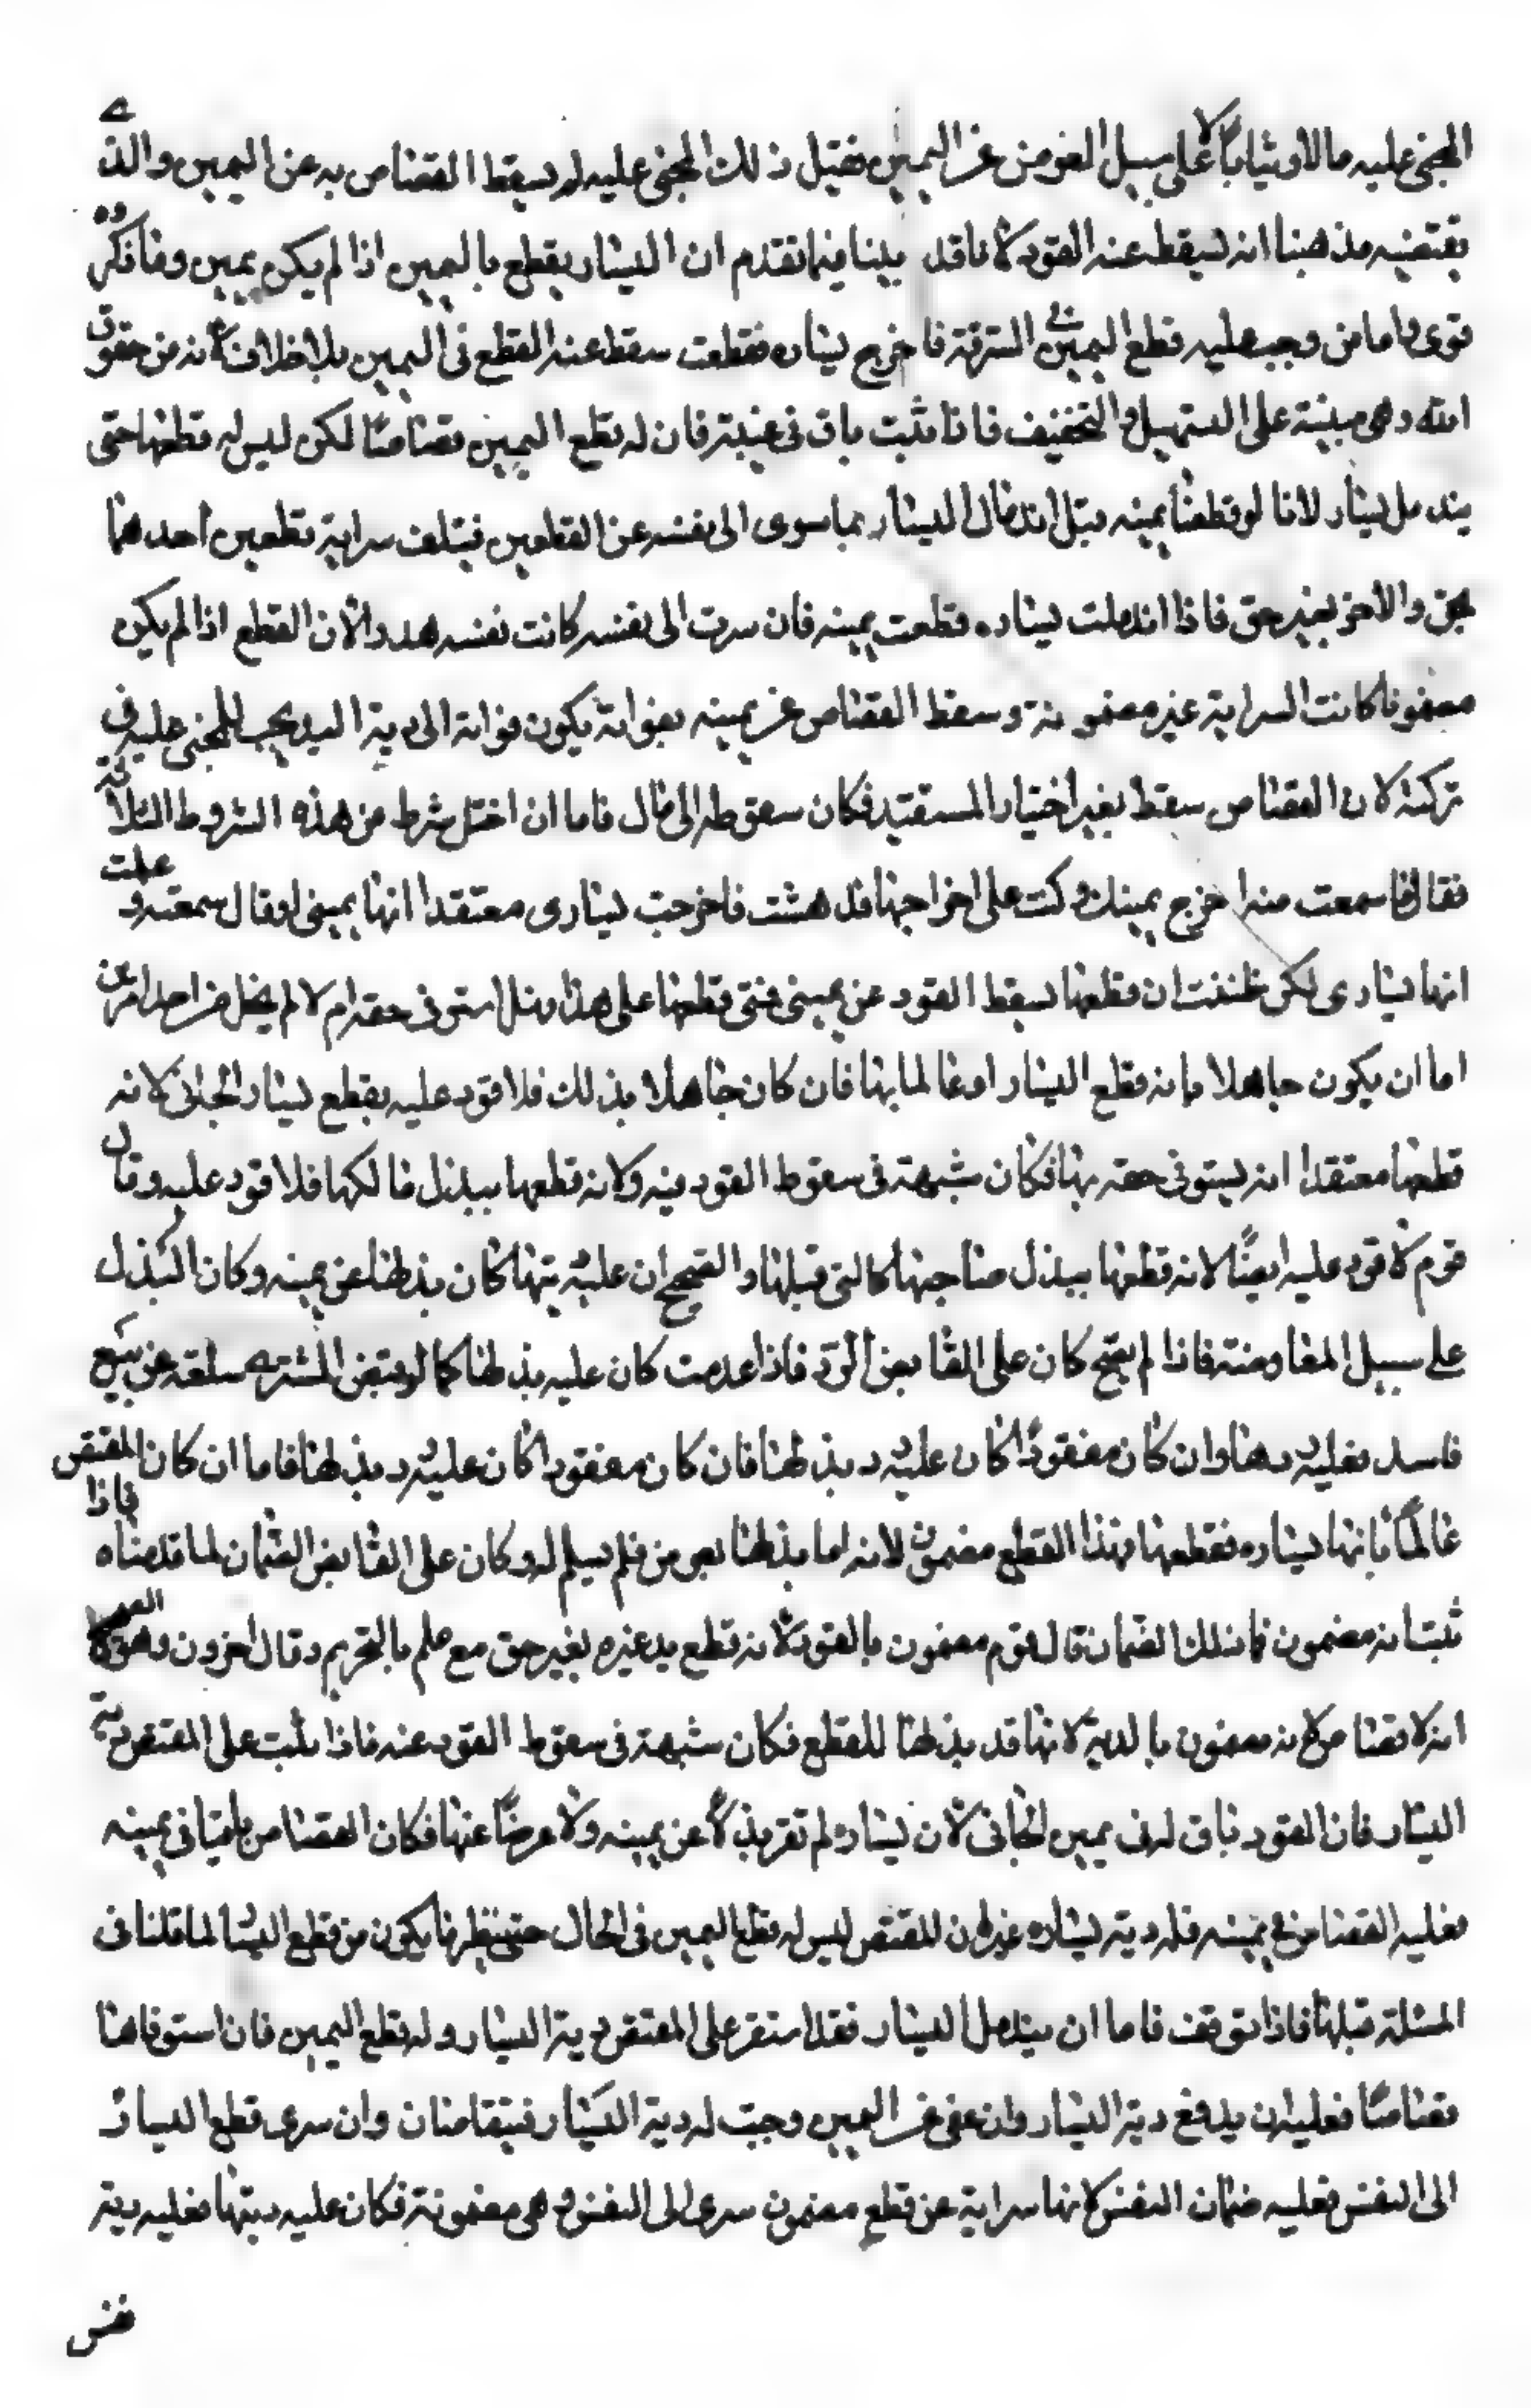 المجنى عليه مالا او ثيابا لا على سبيل العوض عن اليمين فقبل ذلك المجنى عليه لم يسقط القصاص به عن اليمين والذى
يقتضيه مذهبنا انه يسقط عنه القود لانا قد بينا فيما تقدم ان اليسار يقطع باليمين اذا لم يكن يمين وما ذكروه
قوى واما من وجب عليه قطع اليمين فى السرقة فاخرج يساره فقطعت سقط عنه القطع فى اليمين بلا خلاف لانه من حقوق
الله وهى مبنية على التسهيل والتخفيف فاذا ثبت باق فى عينيه فان له قطع اليمين قصاصا لكن ليس له قطعها حتى
يندمل يسار لانا لو قطعنا يمينه قبل اندمال اليسار بما سرى الى نفسه عن القطعين فيتلف سراية قطعين احدهما
بحق والاخر بغير حق فاذا اندملت يساره قطعت يمينه فان سرت الى نفسه كانت نفسه هدرا لان القطع اذا لم يكن
مضمونا كانت السراية غير مضمونة وسقط القصاص عن يمينه بفواته يكون فواته الى دية اليد يجب للمجنى عليه فى
تركته لان القصاص سقط بغير اختيار المستقيد فكان سقوطه الى مال فاما ان اختل شرط من هذه الشروط الثلاثة
فقال انما سمعت منه اخرج يمينك وكنت على اخراجها فدهشت فاخرجت يسارى معتقدا انها يمينى او قال سمعته وعلمت
انها يسارى لكن ظننت ان قطعها يسقط القود عن يمينى فمتى قطعها على هذا وهل استوفى حقه ام لا لم يخل من احد امرين
اما ان يكون جاهلا بانه قطع اليسار او عالما بها فان كان جاهلا بذلك فلا قود عليه بقطع يسار الجانى لانه
قطعها معتقدا انه يستوفى حقه بها فكان شبهة فى سقوط القود فيه ولانه قطعها ببذل مالكها فلا قود عليه وقال
قوم لا قود عليه ايضا لانه قطعها ببذل صاحبها كالتى قبلها والصحيح ان عليه ديتها كان بذلها عن يمينه وكان البذل
على سبيل المعاوضة فاذا لم يصح كان على القابض الرد فاذا عدمت كان عليه بذلها كما لو قبض المشترى سلعة عن بيع
فاسد فعليه ردها وان كان مفقودا كان عليه رد بذلها فان كان مفقودا كان عليه رد بذلها فاما ان كان المقتص
عالما بانها يساره فقطعها فهذا القطع مضمون لانه اما بذلها بعوض فلم يسلم له وكان على القابض الضمان لما قدمناه فاذا
ثبت انه مضمون فما ذلك الضمان قال قوم مضمون بالقود لانه قطع يد غيره بغير حق مع علم بالتحريم وقال اخرون وهو
انه لا قصاص لانه مضمون بالدية لانها قد بذلها للقطع فكان شبهة فى سقوط القود عنه فاذا ثبت على المقتص دية
اليسار فان القود باق له فى يمين الجانى لان يساره لم تقر بذلا عن يمينه ولا عوضا عنها فكان القصاص باقيا فى يمينه
فعليه القصاص فى يمينه فله دية يساره غير ان للمقتص ليس له قطع اليمين فى الحال حتى ينظر ما يكون من قطع اليسار لما قلنا فى
المسئلة قبلها فاذا توقف فاما ان يندمل اليسار فقد استقر على المقتص دية اليسار وله قطع اليمين فان استوفاها
قصاصا فعليه ان يدفع دية اليسار وان عفى عن اليمين وجبت له دية اليسار فيتقاصان وان سرى قطع اليسار
الى النفس فعليه ضمان النفس لانها سراية عن قطع مضمون سرى الى النفس وهى مضمونة فكان عليه ديتها فعليه دية
نفس